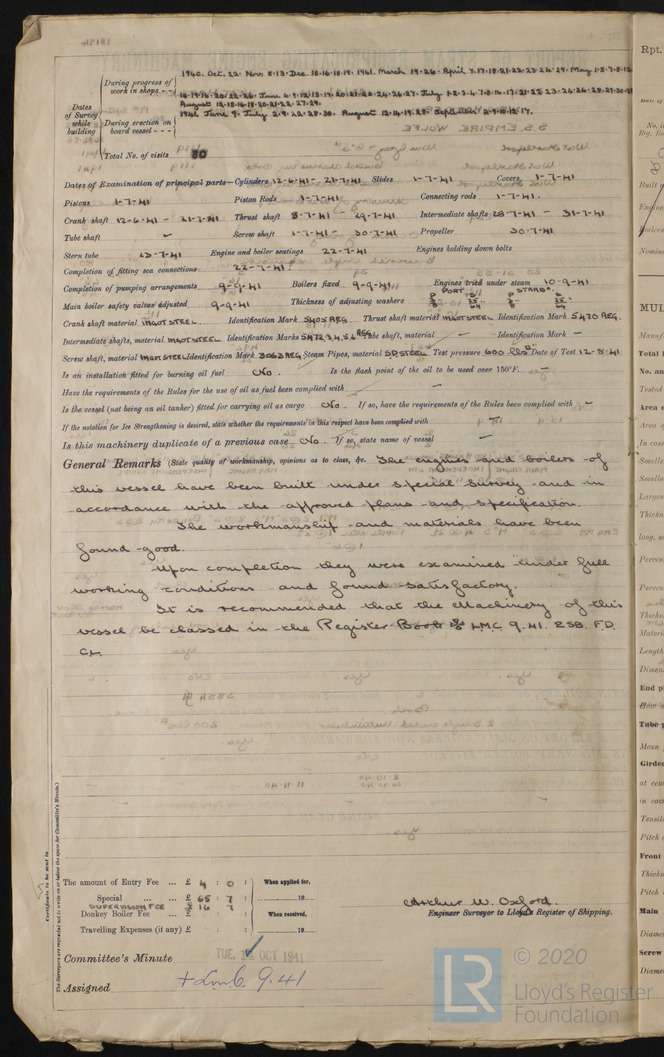 During progress of work in shops - - 1940. Oct. 22. Nov 8.13. Dec. 10.16.18.19. 1941. March 19.26. April
August 12.15.18.19.20.21.22.27.29.
Dates of Survey while building
During erection on board vessel - - - 1941. June 9. July 2.9.22.28.30. August 12.14.19.28. September 2.9.
Total No. of visits 80
Dates of Examination of principal parts—Cylinders 12-6-41 - 21-7-41 Slides 1-7-41 Covers 1-7-41
Pistons 1-7-41 Piston Rods 1-7-41 Connecting rods 1-7-41.
Crank shaft 12-6-41 - 21-7-41 Thrust shaft 8-7-41 - 29-7-41 Intermediate shafts 28-7-41 - 31-7-41
Tube shaft - Screw shaft 1-7-41 - 30-7-41 Propeller 30-7-41
Stern tube 23-7-41 Engine and boiler seatings 22-7-41 Engines holding down bolts
Completion of fitting sea connections 22-7-41.
Completion of pumping arrangements 9-9-41 Boilers fixed 9-9-41 Engines tried under steam 10-9-41
Main boiler safety valves adjusted 9-9-41 Thickness of adjusting washers PORT STARBD
Crank shaft material INGOT STEEL Identification Mark 5405 AEG. Thrust shaft material INGOT STEEL Identification Mark 5470 AEG.
Intermediate shafts, material INGOT STEEL Identification Marks 5472,3,4,5,6 AEG Tube shaft, material - Identification Mark -
Screw shaft, material INGOT STEEL Identification Mark 3062 AEG Steam Pipes, material S.D. STEEL Test pressure 600 Lbs □" Date of Test 12-8-41
Is an installation fitted for burning oil fuel No. Is the flash point of the oil to be used over 150°F. -
Have the requirements of the Rules for the use of oil as fuel been complied with -
Is the vessel (not being an oil tanker) fitted for carrying oil as cargo No. If so, have the requirements of the Rules been complied with -
If the notation for Ice Strengthening is desired, state whether the requirements in this respect have been complied with -
Is this machinery duplicate of a previous case No. If so, state name of vessel -
General Remarks (State quality of workmanship, opinions as to class, &c. The engines and boilers of
this vessel have been built under special survey and in
accordance with the approved plans and specification.
The workmanship and materials have been
found good.
Upon completion they were examined under full
working conditions and found satisfactory.
It is recommended that the Machinery of this
vessel be classed in the Register Book LMC 9.41. 2SB. FD.
CL.
Certificate to be sent to
The Surveyors are requested not to write on or below the space for Committee's Minute.
The amount of Entry Fee ... £ 4 : 0 : When applied for,
Special ... ... £ 65 : 7 : 19
SUPERVISION FEE £ 16 : 7
Donkey Boiler Fee ... £ : : When received,
Travelling Expenses (if any) £ : : 19
Arthur W. Oxford.
Engineer Surveyor to Lloyd's Register of Shipping.
Committee's Minute TUE. OCT 1941
Assigned + Lmc. 9.41
LR
© 2020
Lloyd's Register
Foundation
Rpt.
MUL